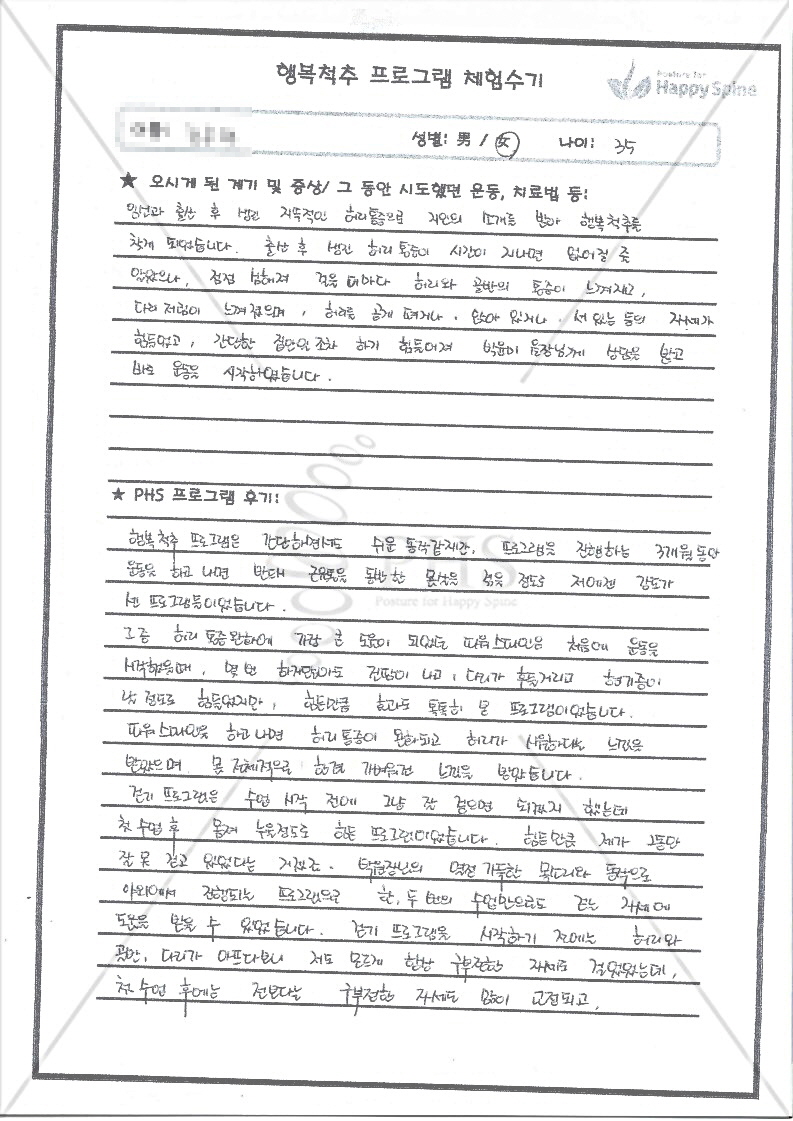 행복척추 프로그램 체험수기
Posture for
Happy Spine
성별: 男 / 女 나이: 35
★ 오시게 된 계기 및 증상/ 그 동안 시도했던 운동, 치료법 등:
임신과 출산 후 생긴 지속적인 허리통증으로 지인의 소개를 받아 행복척추를
찾게 되었습니다. 출산 후 생긴 허리 통증이 시간이 지나면 없어질 줄
알았으나, 점점 심해져 걸을 때마다 허리와 골반의 통증이 느껴지고,
다리 저림이 느껴졌으며, 허리를 곧게 펴거나, 앉아 있거나, 서 있는 등의 자세가
힘들었고, 간단한 집안일조차 하기 힘들어져 박윤미 원장님께 상담을 받고
바로 운동을 시작하였습니다.
★ PHS 프로그램 후기:
행복척추 프로그램은 간단하면서도 쉬운 동작같지만, 프로그램을 진행하는 3개월 동안
운동을 하고 나면 반대 근육통을 동반한 몸살을 겪을 정도로 저에겐 강도가
센 프로그램들이었습니다.
그 중 허리 통증완화에 가장 큰 도움이 되었던 파워스테인은 처음에 운동을
시작했을때, 몇 번 하지않아도 진땀이 나고, 다리가 후들거리고 현기증이
날 정도로 힘들었지만, 힘든만큼 효과도 톡톡히 본 프로그램이었습니다.
파워스테인을 하고나면 허리통증이 완화되고 허리가 시원하다는 느낌을
받았으며 몸 전체적으로 한결 가벼워진 느낌을 받았습니다.
걷기 프로그램은 수업 시작 전에 그냥 잘 걸으면 되겠지 했는데
첫 수업 후 몸져 누울정도로 힘든 프로그램이었습니다. 힘든만큼 제가 그동안
잘 못 걷고 있었다는 거겠죠. 박원장님의 열정 가득한 목소리와 동작으로
야외에서 진행되는 프로그램으로 한, 두 번의 수업만으로도 걷는 자세에
도움을 받을 수 있었습니다. 걷기 프로그램을 시작하기 전에는 허리와
골반, 다리가 아프다보니 저도 모르게 항상 구부정한 자세로 걸었었는데,
첫 수업 후에는 전보다는 구부정한 자세도 많이 교정되고,
PHS
Posture for Happy Spine